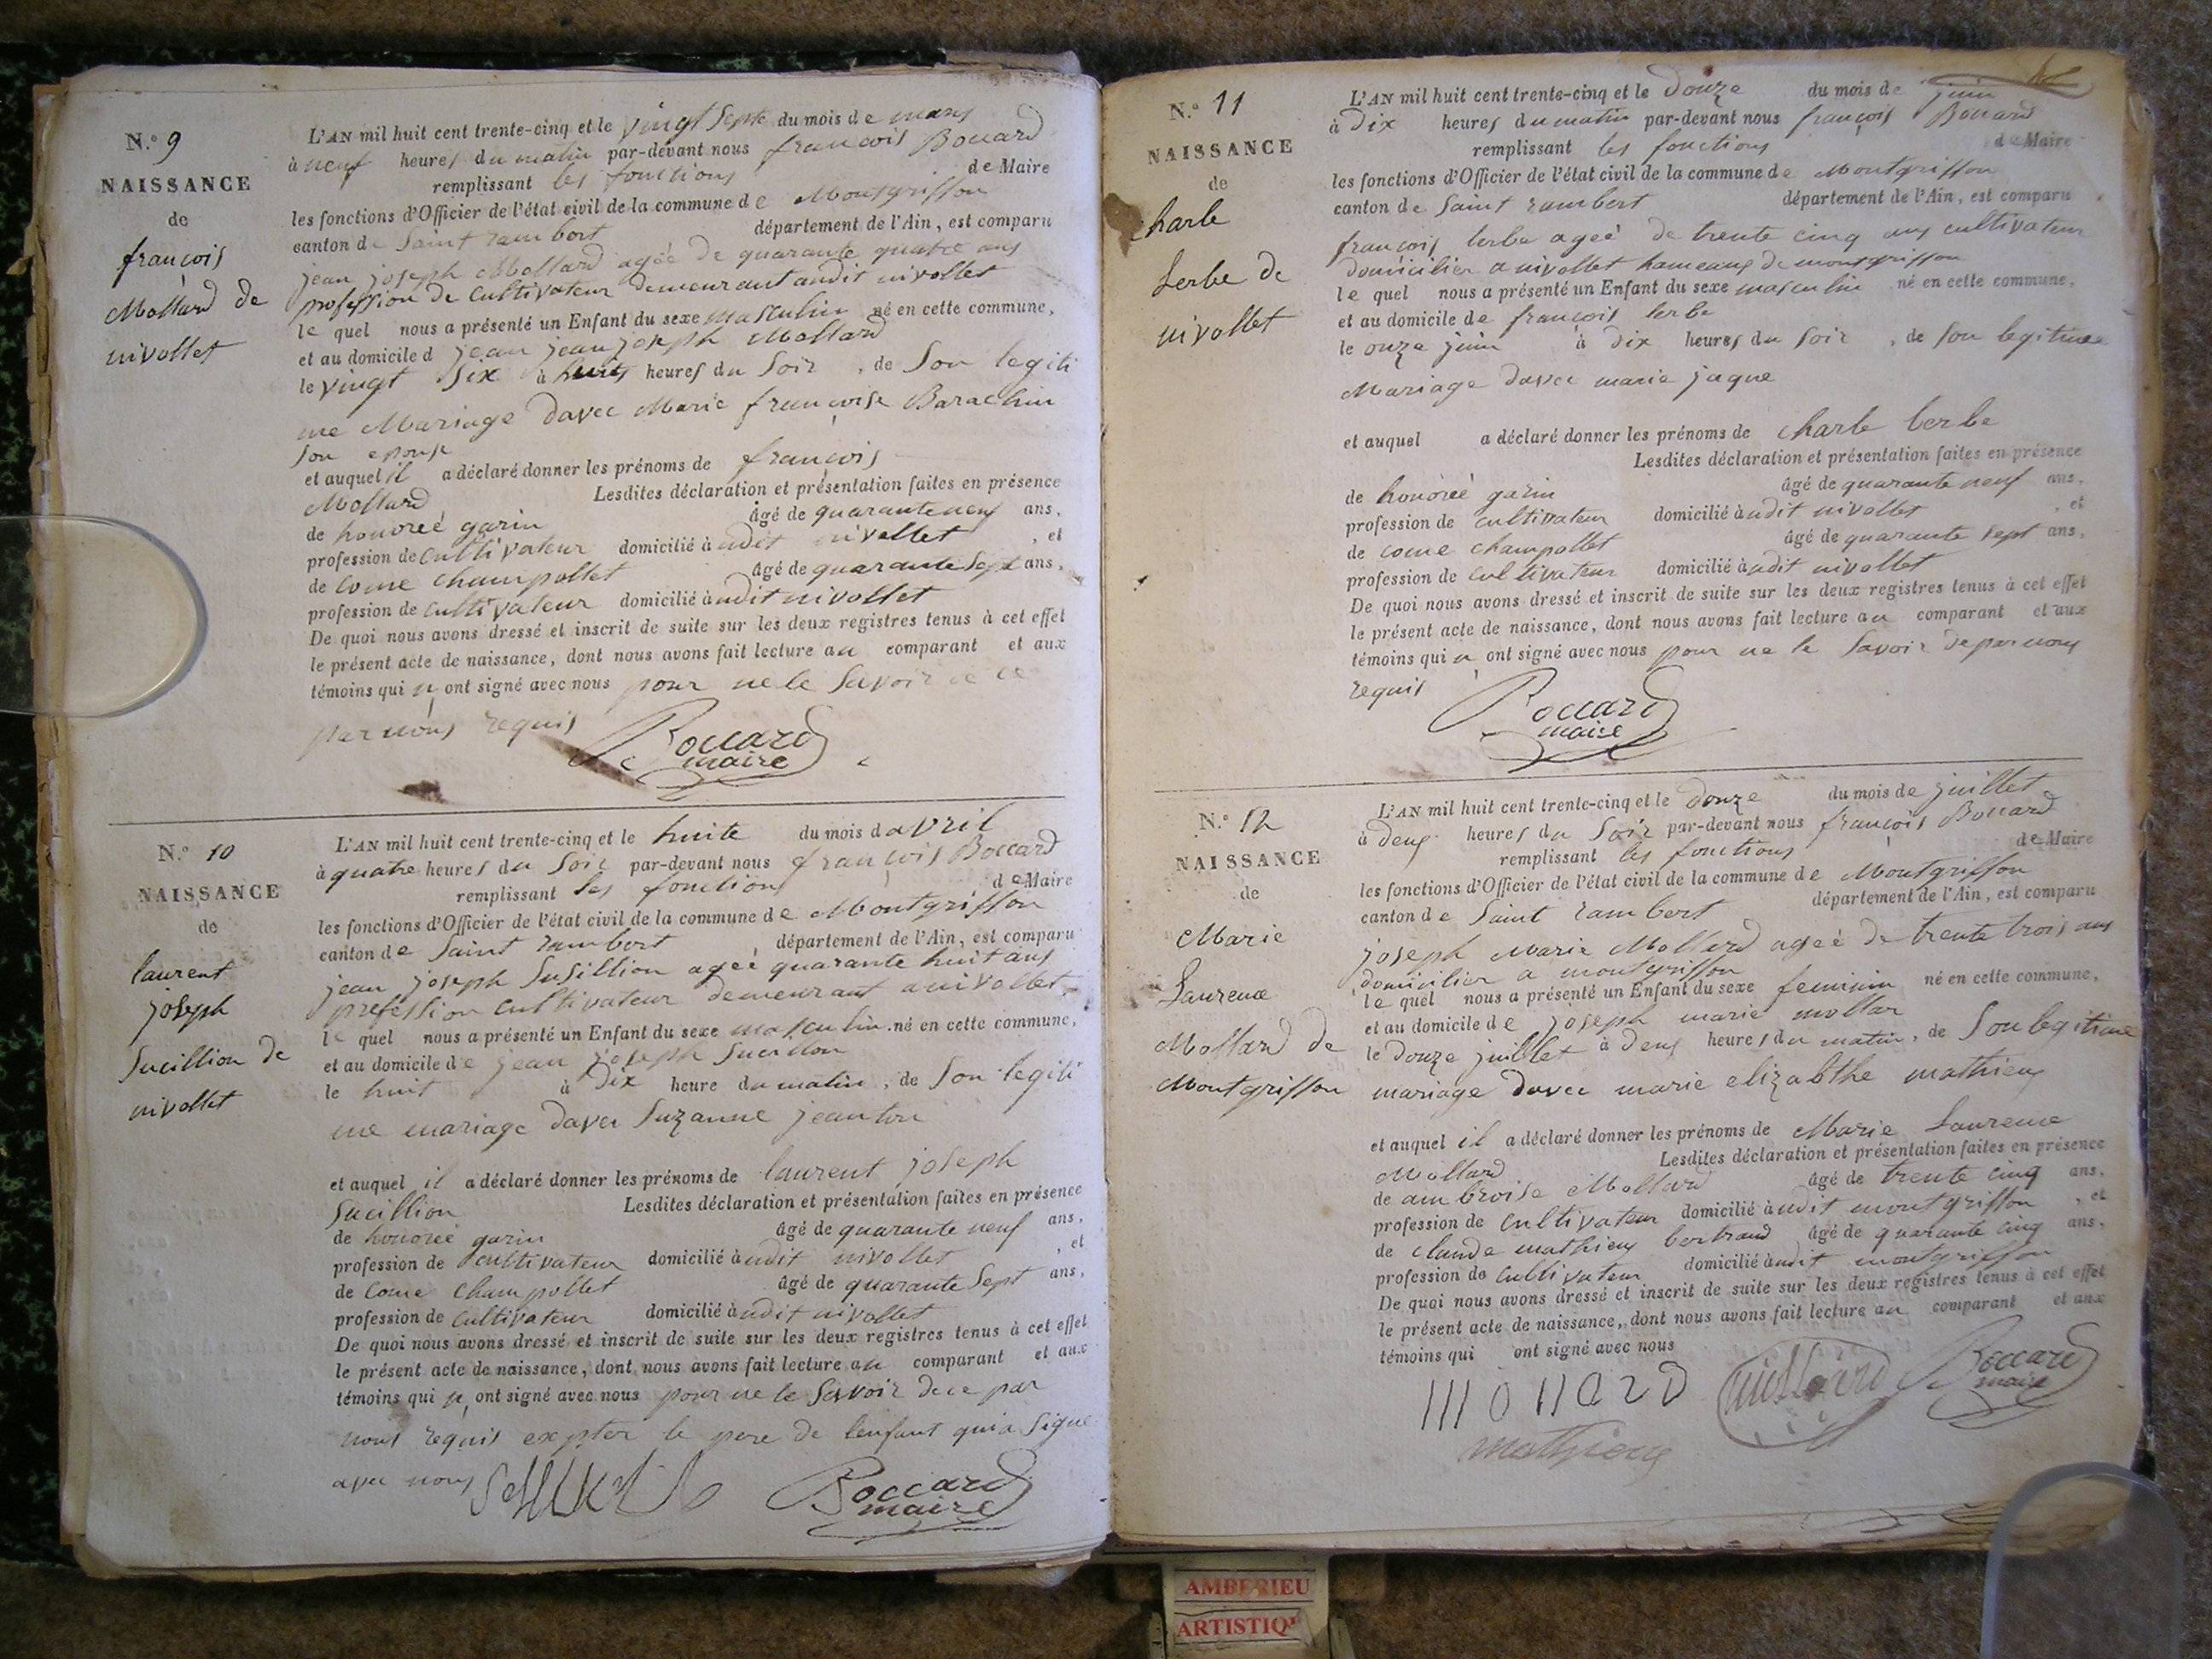 N.° 9
NAISSANCE
de
françois
Mollard de
nivollet
L'AN mil huit cent trente-cinq et le vingt Septe du mois de mars
à neuf heures du matin par-devant nous françois Boccard
remplissant les fonctions de Maire
les fonctions d'Officier de l'état civil de la commune de Montgriffon
canton de Saint rambert département de l'Ain, est comparu
jean joseph Mollard agée de quarante quatre ans
profession de Cultivateur demeurant audit nivollet
le quel nous a présenté un Enfant du sexe masculin né en cette commune,
et au domicile d jean jean joseph Mollard
le vingt Six à huit heures du Soir, de Son legiti
me Mariage davec Marie françoise Barachin
Son epouse
et auquel il a déclaré donner les prénoms de françois
Mollard Lesdites déclaration et présentation faites en présence
de honoreé garin âgé de quarante neuf ans,
profession de Cultivateur domicilié à udit nivollet, et
de Come Champollet âgé de quarante Sept ans,
profession de Cultivateur domicilié à udit nivollet
De quoi nous avons dressé et inscrit de suite sur les deux registres tenus à cet effet
le présent acte de naissance, dont nous avons fait lecture au comparant et aux
témoins qui n ont signé avec nous pour ne le Savoir de ce
par nous requis
Boccard
maire
N.° 10
NAISSANCE
de
laurent
joseph
Sucillion de
nivollet
L'AN mil huit cent trente-cinq et le huite du mois davril
à quatre heures du Soir par-devant nous françois Boccard
remplissant les fonctions de Maire
les fonctions d'Officier de l'état civil de la commune de Montgriffon
canton de Saint rambert, département de l'Ain, est comparu
jean joseph Susillion ageé quarante huit ans
profession cultivateur demeurant a nivollet
le quel nous a présenté un Enfant du sexe masculin né en cette commune,
et au domicile de jean joseph Sucillon
le huit à Dix heure du matin, de Son legiti
me mariage davec Suzanne jeanton
et auquel il a déclaré donner les prénoms de laurent joseph
Sucillion Lesdites déclaration et présentation faites en présence
de honoreé garin âgé de quarante neuf ans,
profession de Cultivateur domicilié à udit nivollet, et
de Come Champollet âgé de quarante Sept ans,
profession de Cultivateur domicilié à udit nivollet
De quoi nous avons dressé et inscrit de suite sur les deux registres tenus à cet effet
le présent acte de naissance, dont nous avons fait lecture au comparant et aux
témoins qui n ont signé avec nous pour ne le Savoir de ce par
nous requis expter le pere de lenfant qui a Signe
avec nous
Boccard
maire
N.° 11
NAISSANCE
de
charle
Lerbe de
nivollet
L'AN mil huit cent trente-cinq et le Douze du mois de juin
à Dix heures du matin par-devant nous françois Boccard
remplissant les fonctions de Maire
les fonctions d'Officier de l'état civil de la commune de Montgriffon
canton de Saint rambert département de l'Ain, est comparu
françois lerbe ageé de trente cinq ans cultivateur
domicilier a nivollet hameaux de montgriffon
le quel nous a présenté un Enfant du sexe masculin né en cette commune,
et au domicile de françois lerbe
le onze juin à dix heures du Soir, de Son legitime
Mariage davec marie jaque
et auquel a déclaré donner les prénoms de charle lerbe
Lesdites déclaration et présentation faites en présence
de honoreé garin âgé de quarante neuf ans,
profession de Cultivateur domicilié à udit nivollet, et
de Come Champollet âgé de quarante Sept ans,
profession de Cultivateur domicilié à udit nivollet
De quoi nous avons dressé et inscrit de suite sur les deux registres tenus à cet effet
le présent acte de naissance, dont nous avons fait lecture au comparant et aux
témoins qui n ont signé avec nous pour ne le Savoir de par nous
requis
Boccard
maire
N.° 12
NAISSANCE
de
Marie
Laurence
Mollard de
Montgriffon
L'AN mil huit cent trente-cinq et le Douze du mois de juillet
à deux heures du Soir par-devant nous françois Boccard
remplissant les fonctions de Maire
les fonctions d'Officier de l'état civil de la commune de Montgriffon
canton de Saint rambert département de l'Ain, est comparu
joseph Marie Mollard ageé de trente trois ans
domicilier a montgriffon
le quel nous a présenté un Enfant du sexe feminin né en cette commune,
et au domicile de joseph marie mollar
le Douze juillet à deux heures du matin, de Son legitime
mariage davec marie elizabthe mathieux
et auquel il a déclaré donner les prénoms de Marie Laurence
Mollard Lesdites déclaration et présentation faites en présence
de ambroise Mollard âgé de trente cinq ans,
profession de Cultivateur domicilié à udit montgriffon, et
de claude mathieux bertrand âgé de quarante cinq ans,
profession de Cultivateur domicilié à udit montgriffon
De quoi nous avons dressé et inscrit de suite sur les deux registres tenus à cet effet
le présent acte de naissance, dont nous avons fait lecture au comparant et aux
témoins qui ont signé avec nous
mollard mollard Boccard
maire
mathieux
AMBERIEU
ARTISTIQ